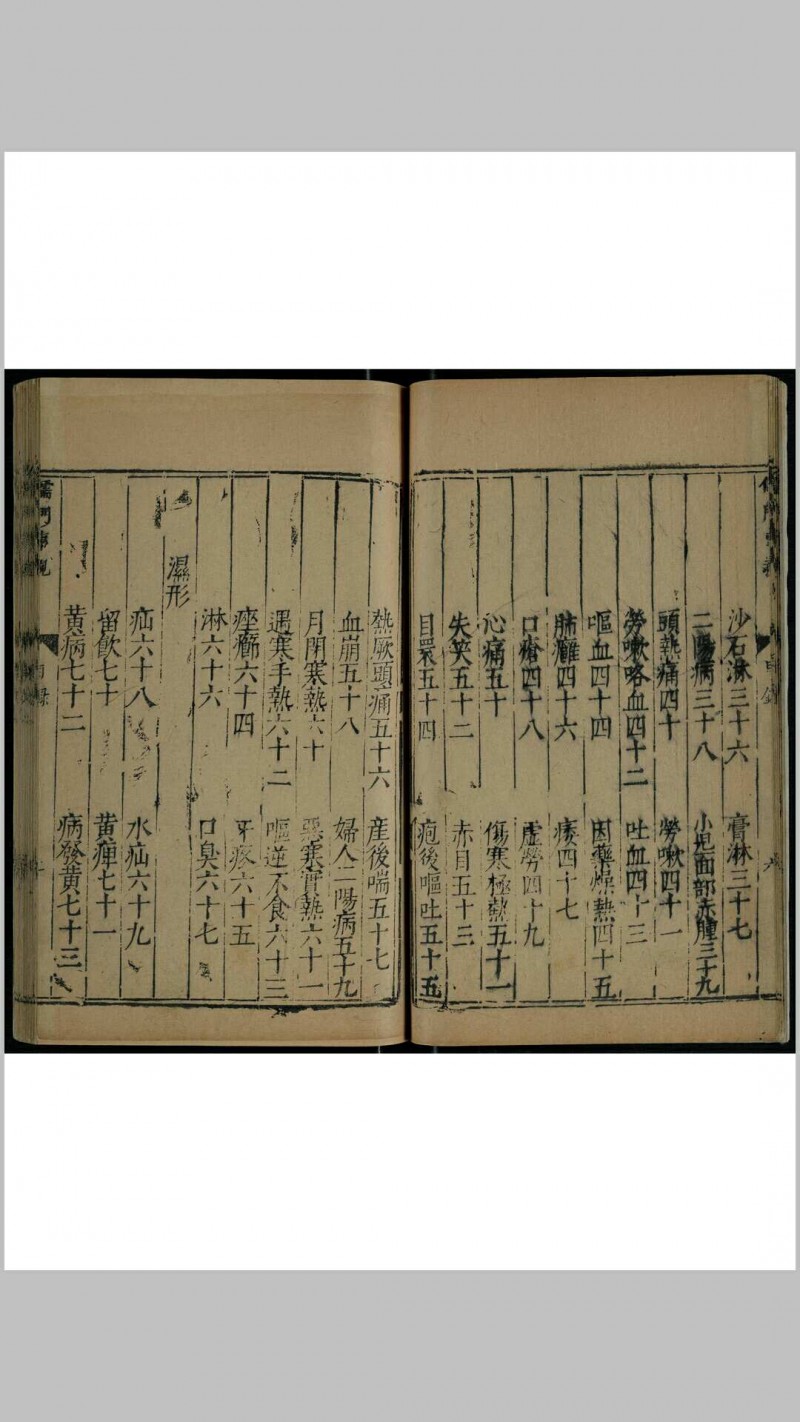 沙石淋三十六　膏淋三十七
二陽病三十八　小兒面部赤腫三十九
頭熱痛四十　勞嗽四十一
勞嗽咯血四十二　吐血四十三
嘔血四十四　因藥燥熱四十五
肺癰四十六　痿四十七
口瘡四十八　虛勞四十九
心痛五十　傷寒極熱五十一
失笑五十二　赤目五十三
目睘五十四　疱後嘔吐五十五
熱厥頭痛五十六　産後喘五十七
血崩五十八　婦人二陽病五十九
月閉寒熱六十　惡寒實熱六十一
遇寒手熱六十二　嘔逆不食六十三
痤癤六十四　牙疼六十五
淋六十六　口臭六十七
濕形
疝六十八　水疝六十九
留飲七十　黃痺七十一
黃病七十二　病發黃七十三
儒門事親　目錄